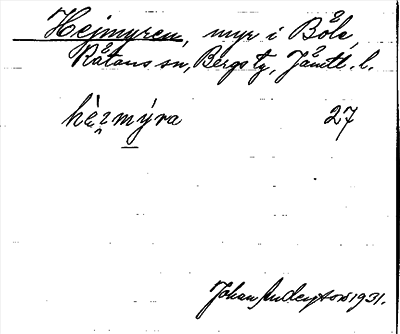 Hejmyren, myr i Böle,
Råtans sn, Bergs tg, Jämtl. l.
hèi̯mýra 27
Johan Anderson 1931.